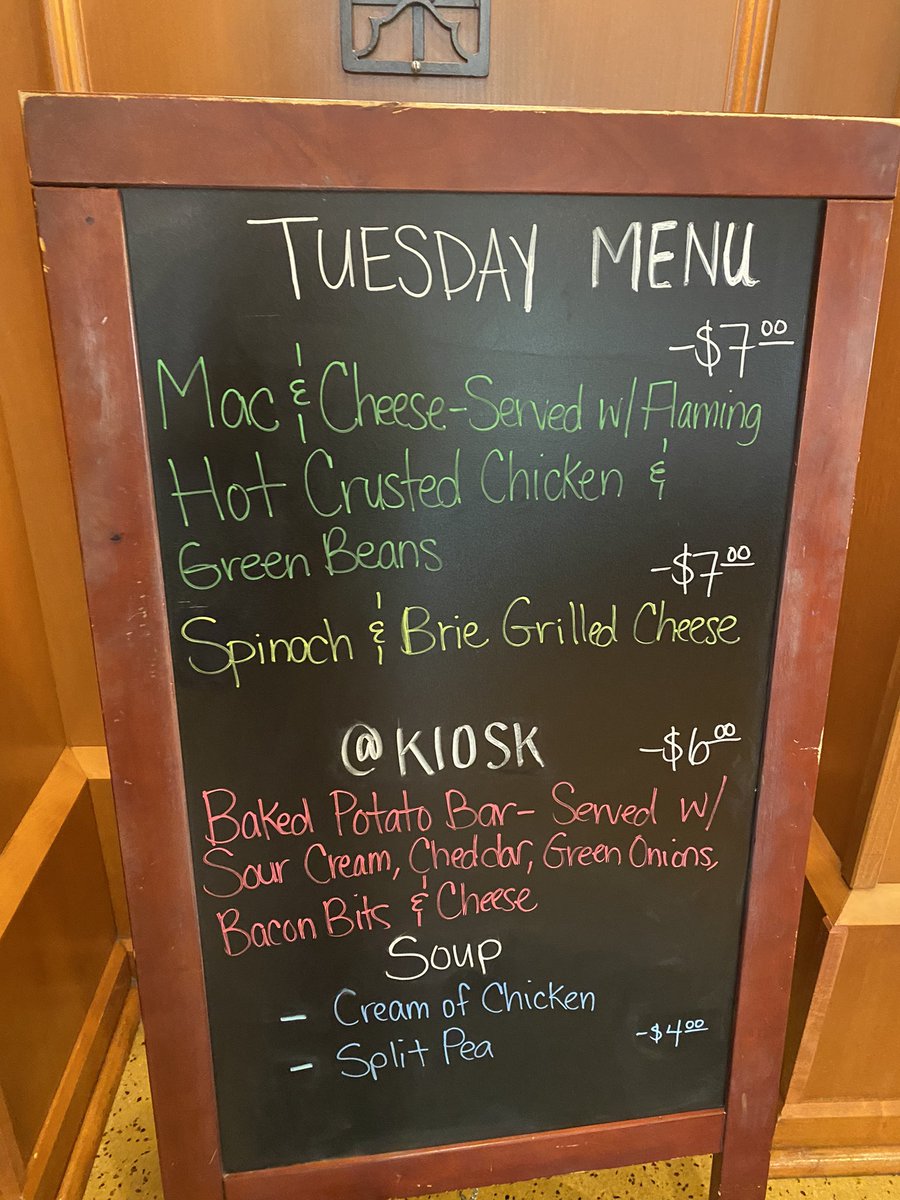 TUESDAY MENU
-$7.00
Mac & Cheese-Served w/ Flaming
Hot Crusted Chicken &
Green Beans
-$7.00
Spinach & Brie Grilled Cheese
@KIOSK -$6.00
Baked Potato Bar- Served w/
Sour Cream, Cheddar, Green Onions,
Bacon Bits & Cheese
Soup
- Cream of Chicken
- Split Pea -$4.00